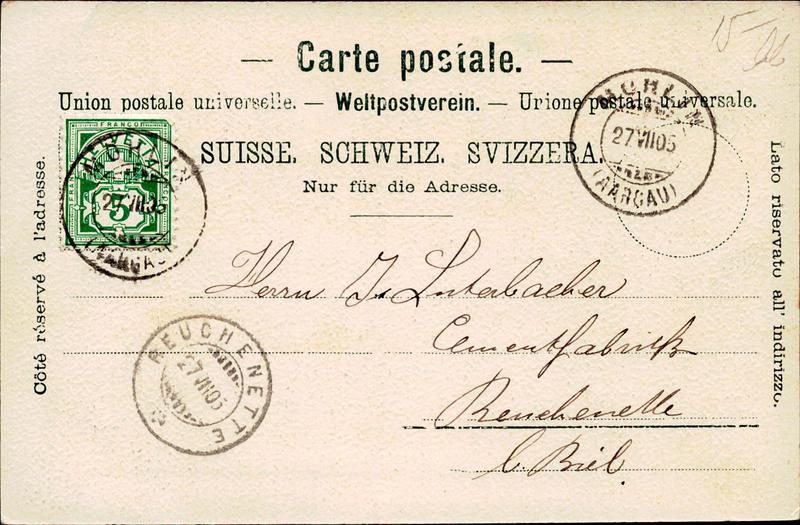 15
— Carte postale. —
Union postale universelle. — Weltpostverein. — Unione postale universale.
SUISSE. SCHWEIZ. SVIZZERA.
Nur für die Adresse.
Côté réservé à l'adresse.
Lato riservato all' indirizzo.
FRANCO
HELVETIA
5
27 VII 05
(AARGAU)
27 VII 05
(AARGAU)
REUCHENETTE
27 VII 05
Herrn J. Luterbacher
Cementfabrik
Reuchenette
b. Biel.